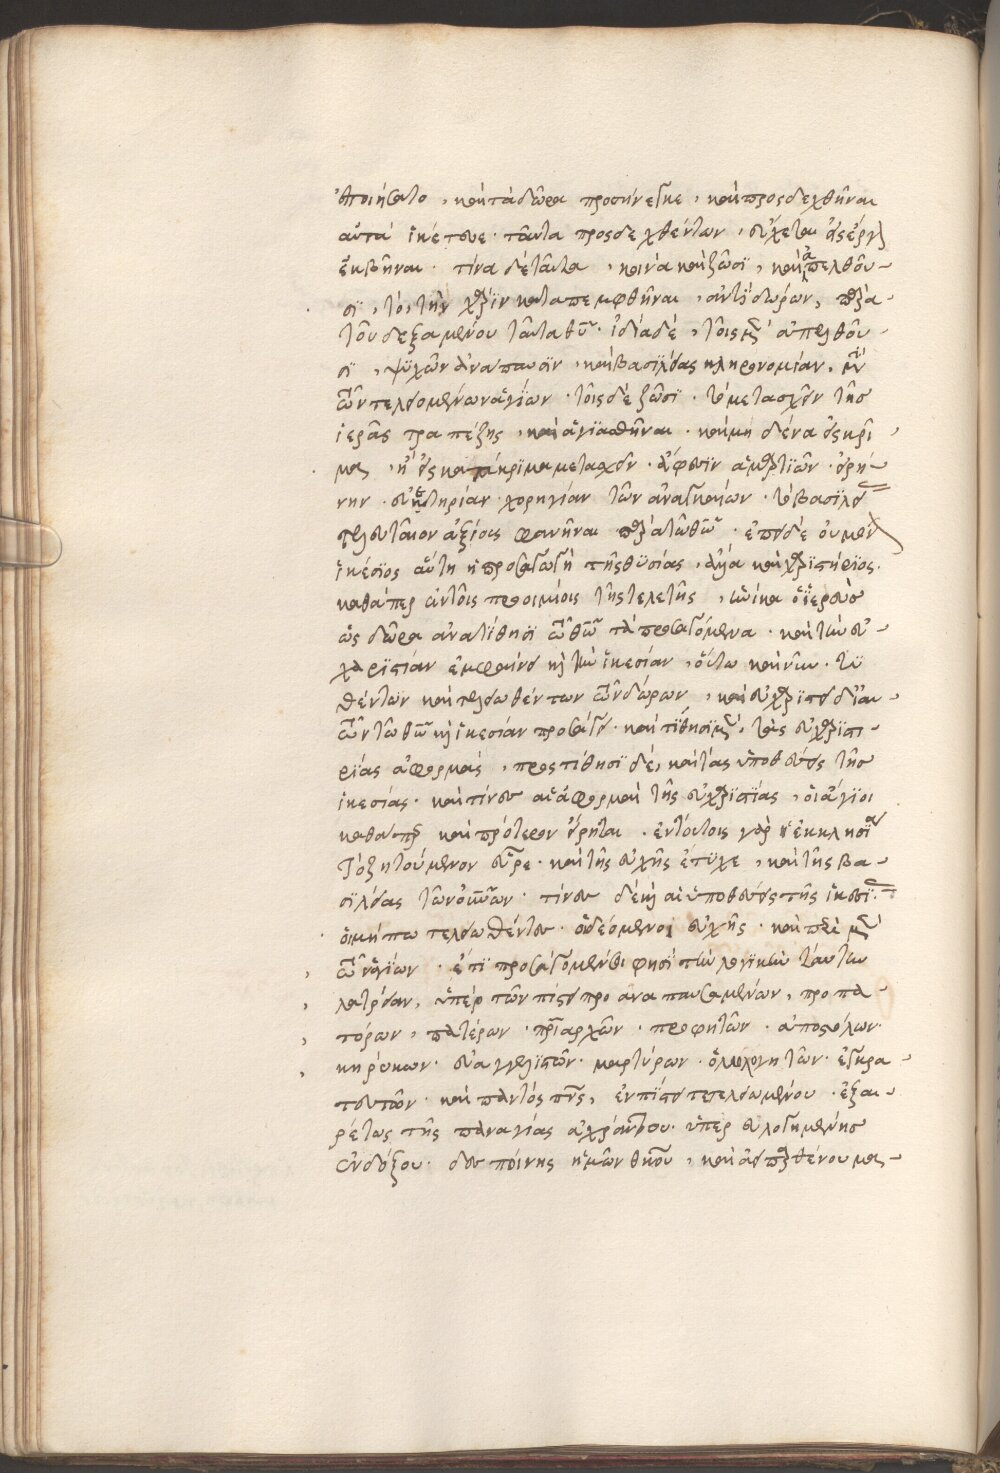 ἐποιήσατο, καὶ τὰ δῶρα προσήνεγκε, καὶ προσδεχθῆναι
αὐτὰ ἱκέτευε· ταῦτα προσδεχθέντων, εὔχεται εἰς ἔργον
ἐκβῆναι· τίνα δὲ ταῦτα, κοινὰ καὶ ζῶσι, καὶ ἀπελθοῦ-
σι, τὸ, τὴν χάριν καταπεμφθῆναι, ἀντιδώρων, παρὰ
τοῦ δεξαμένου ταῦτα θῦ· ἰδία δέ, τοῖς μὲν ἀπελθοῦ-
σι, ψυχῶν ἀνάπαυσιν, καὶ βασιλείας κληρονομίαν, μετὰ
τῶν τελειουμένων ἁγίων· τοῖς δὲ ζῶσι· τὸ μετασχεῖν τῆς
ἱερᾶς τραπέζης, καὶ ἁγιασθῆναι· καὶ μηδένα εἰς κρῖ-
μα, ἢ εἰς κατάκριμα μετασχεῖν· ἄφεσιν ἁμαρτιῶν· εἰρή-
νην· εὐετηρίαν· χορηγίαν τῶν ἀναγκαίων· τὸ βασιλεί
τελευταῖον ἀξίοις φανῆναι παρὰ τῶ θῶ· ἐπεὶ δὲ οὐ μόνον
ἱκέσιος αὕτη ἡ προσαγωγὴ τῆς θυσίας, ἀλλὰ καὶ χαριστήριος·
καθάπερ ἐν τοῖς προοιμίοις τῆς τελετῆς, ἡνίκα ὁ ἱερεὺς
ὡς δῶρα ἀνατίθησι τῶ θῶ τὰ προσαγόμενα· καὶ τὴν εὐ-
χαριστίαν ἐμφαίνει κ τὴν ἱκεσίαν, οὕτω καὶ νῦν· τε
θέντων καὶ τελειωθέντων τῶν δώρων, καὶ εὐχαριστεῖ διὰ
τούτων τῶ θῶ κ ἱκεσίαν προσάγει· καὶ τίθησι μὲν, τὰς εὐχαριστη-
ρίας ἀφορμάς, προστίθησι δὲ, καὶ τὰς ὑποθέσεις τῆς
ἱκεσίας· καὶ τίνες αἱ ἀφορμαὶ τῆς εὐχαριστίας, οἱ ἅγιοι
καθάπερ καὶ πρότερον εἴρηται· ἐν τούτοις γὰρ ἡ ἐκκλησία
τὸ ζητούμενον εὗρε· καὶ τῆς εὐχῆς ἔτυχε, καὶ τῆς βα-
σιλείας τῶν οὐνῶν· τίνες δὲ κ αἱ ὑποθέσεις τῆς ἱκεσίας·
οἱ μήπω τελειωθέντες· οἱ δεόμενοι εὐχῆς· καὶ περὶ μὲν
τῶν ἁγίων· ἔτι προσάγομέν σοι φησὶ τὴν λογικὴν ταύτην
λατρείαν, ὑπὲρ τῶν πίστει προαναπαυσαμένων, προπα-
τόρων, πατέρων· πριαρχῶν· προφητῶν· ἀποστόλων·
κηρύκων· εὐαγγελιστῶν· μαρτύρων· ὁμολογητῶν· ἐγκρα-
τευτῶν· καὶ παντὸς πνς, ἐν πίστει τετελειωμένου· ἐξαι-
ρέτως τῆς παναγίας ἀχράντου· ὑπερευλογημένης
ἐνδόξου· δεσποίνης ἡμῶν θκου, καὶ ἀειπαρθένου μα-